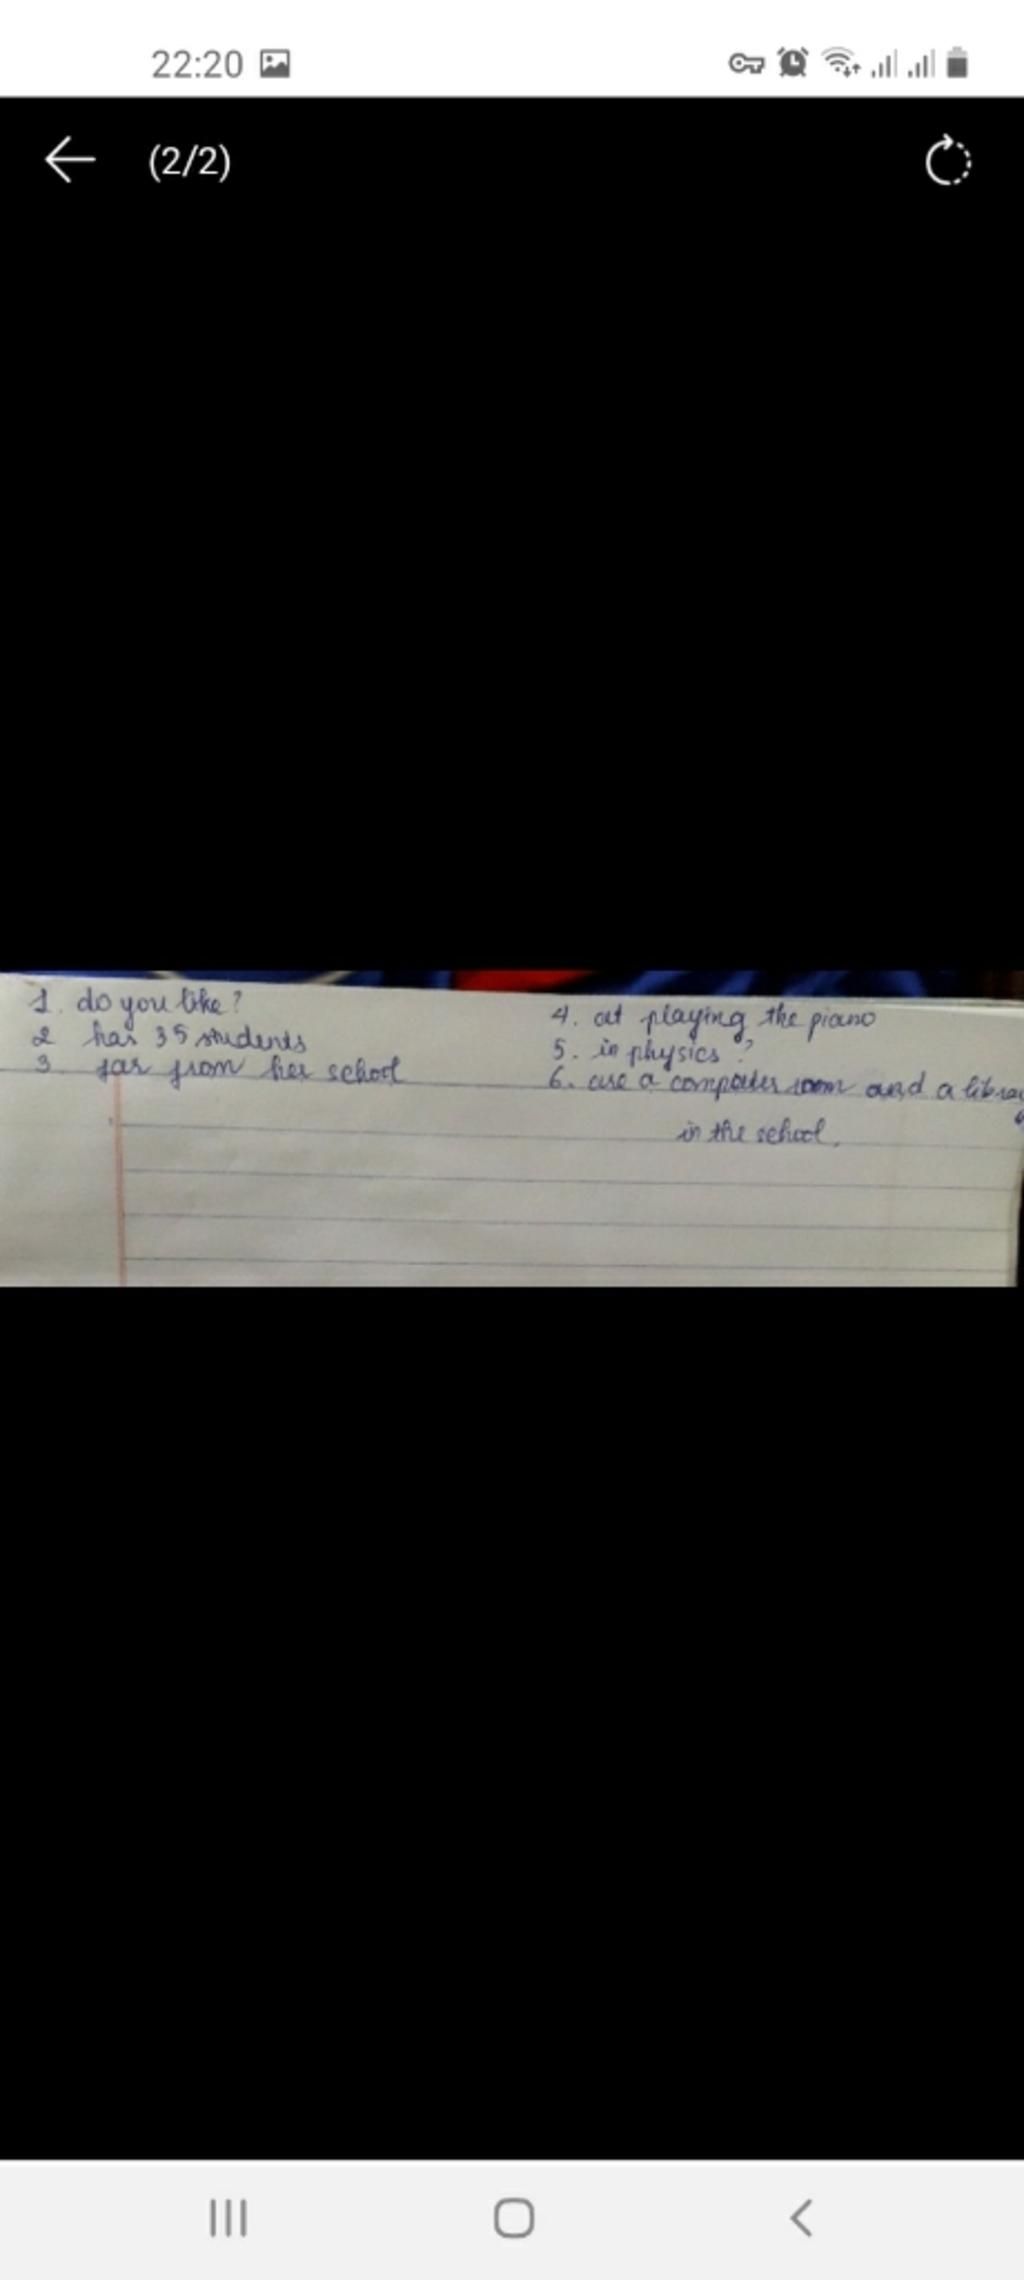 22:20
(2/2)
1. do you like?
2 has 35 students
3. far from her school
4. at playing the piano
5. in physics?
6. are a computer room and a library
in the school.